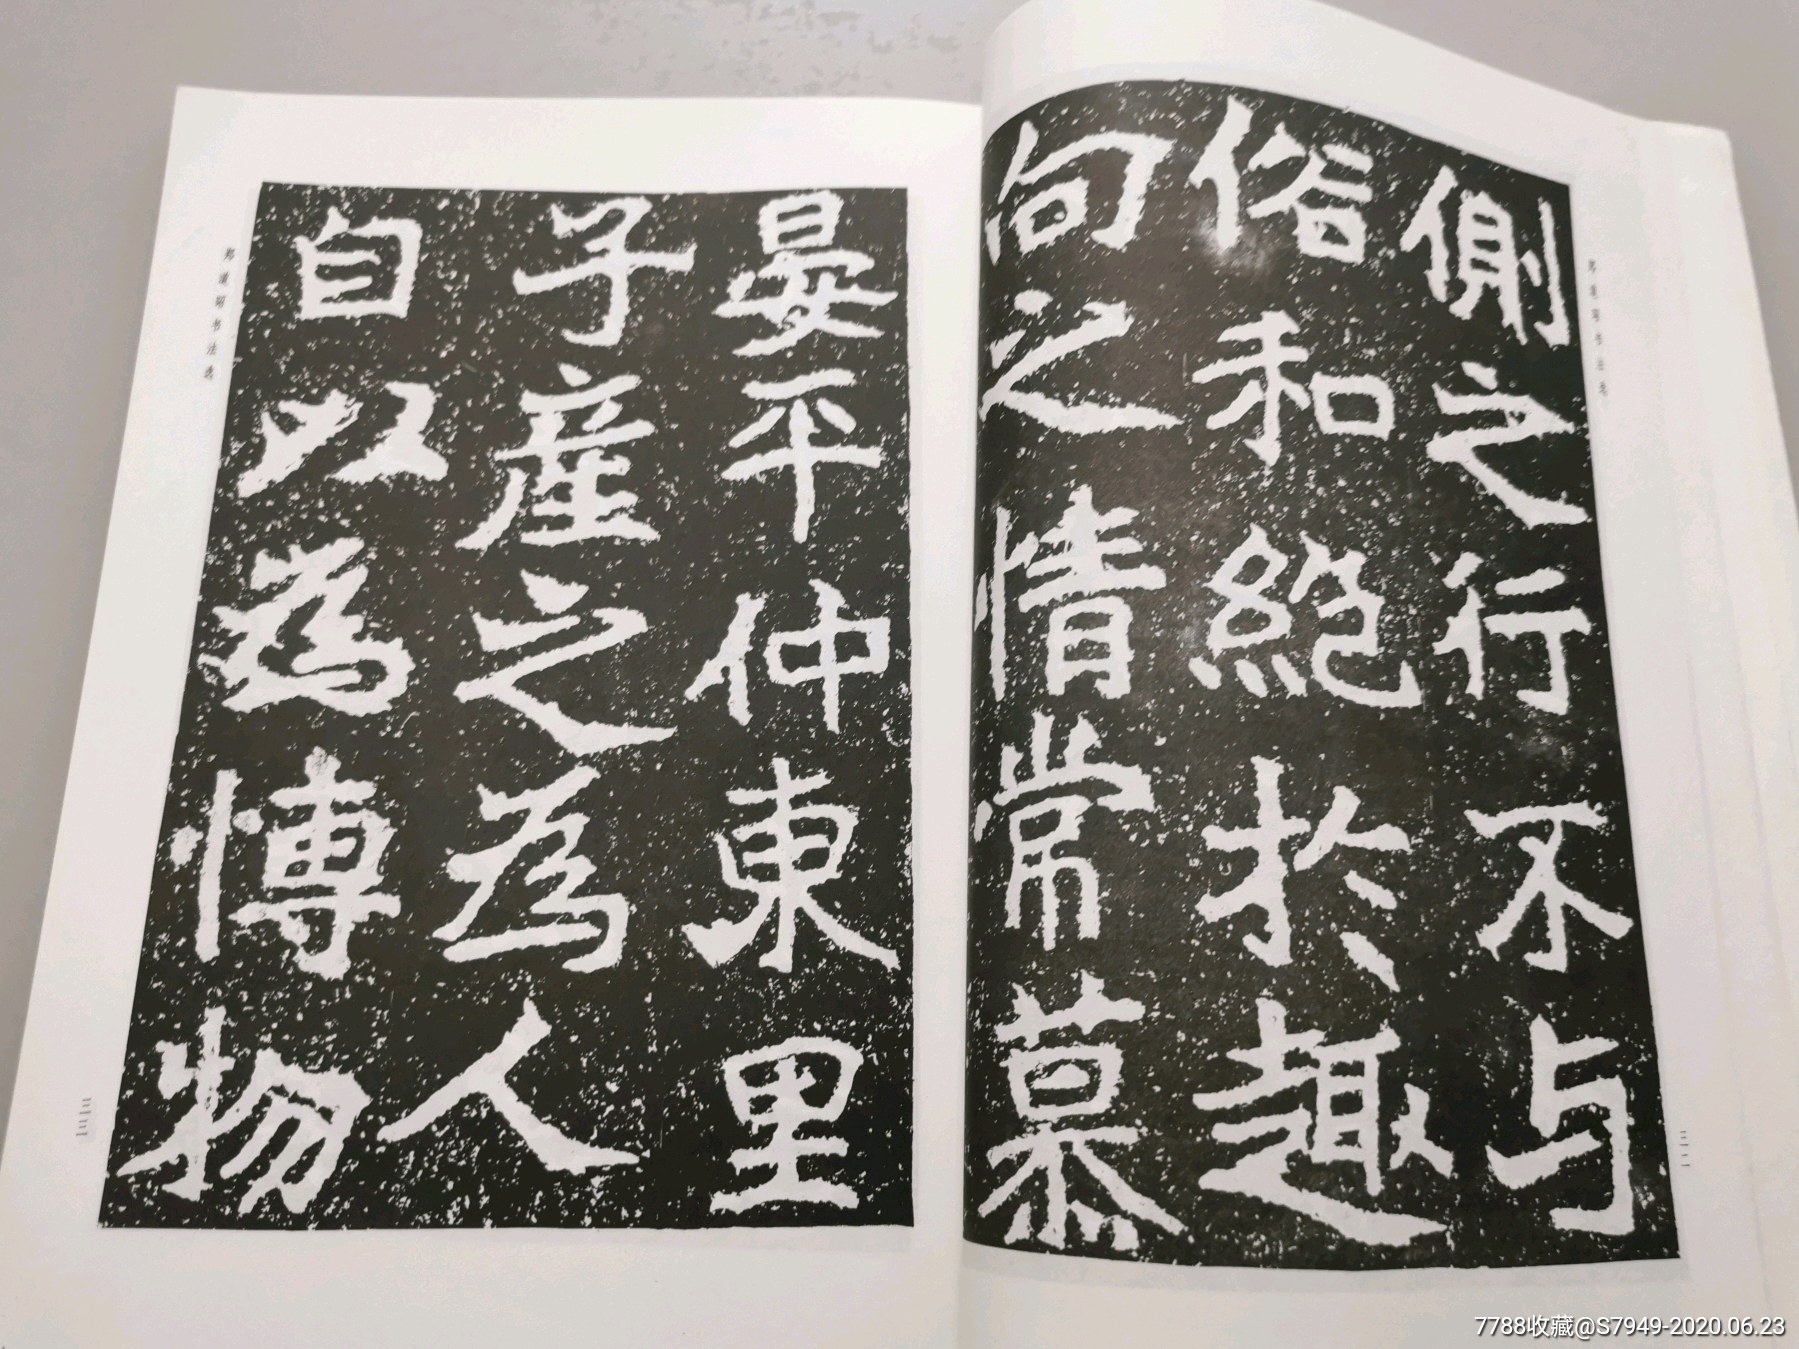 側之行不与
俗和絶於趣
向之情常慕
晏平仲東里
子産之為人
自以為博物
郑道昭书法选
郑道昭书法选
7788收藏@S7949-2020.06.23